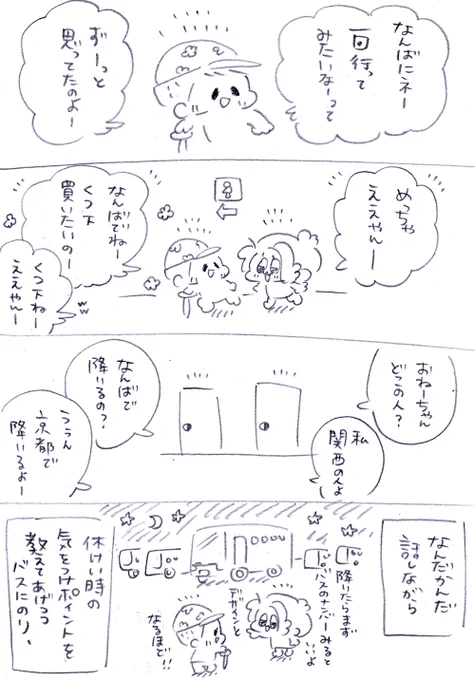 なんばにネー
一回行って
みたいなーって
ずーっと
思ってたのよー
めちゃ
ええやんー
なんばでねー
くつ下
買いたいのー
くつ下ねー
ええやんー
おねーちゃん
どこの人?
私
関西の人よ
なんばで
降いるの?
ううん
京都で
降いるよー
なんだかんだ
話しながら
降いたらまず
バスのナンバーみると
いいよ
デザインと
なるほど!!
休けい時の
気をつけポイントを
教えてあげつつ
バスにのり、